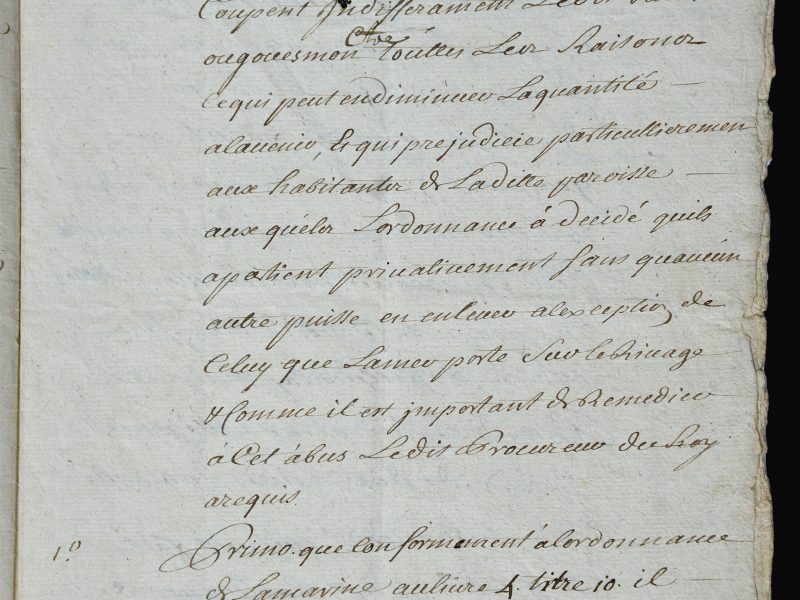 Coupent Indifferament Le dit
ougouesmon touttes Les Raisons
cequi peut endiminuer Laquantité
alavenir, & qui prejudicie particullierement
aux habitantes de Laditte paroisse
aux quéles Lordonnance à decidé quils
apartient privativement sans quaucun
autre puisse en enlever alexception de
Celuy que Lamer porte Sur le Rivage
& Comme il est jmportant de Remedier
à Cet àbus Ledit Procureur du Roy
arequis
1.º Primo. que conformement àlordonnance
de Lamarine au livre 4. titre 10. il